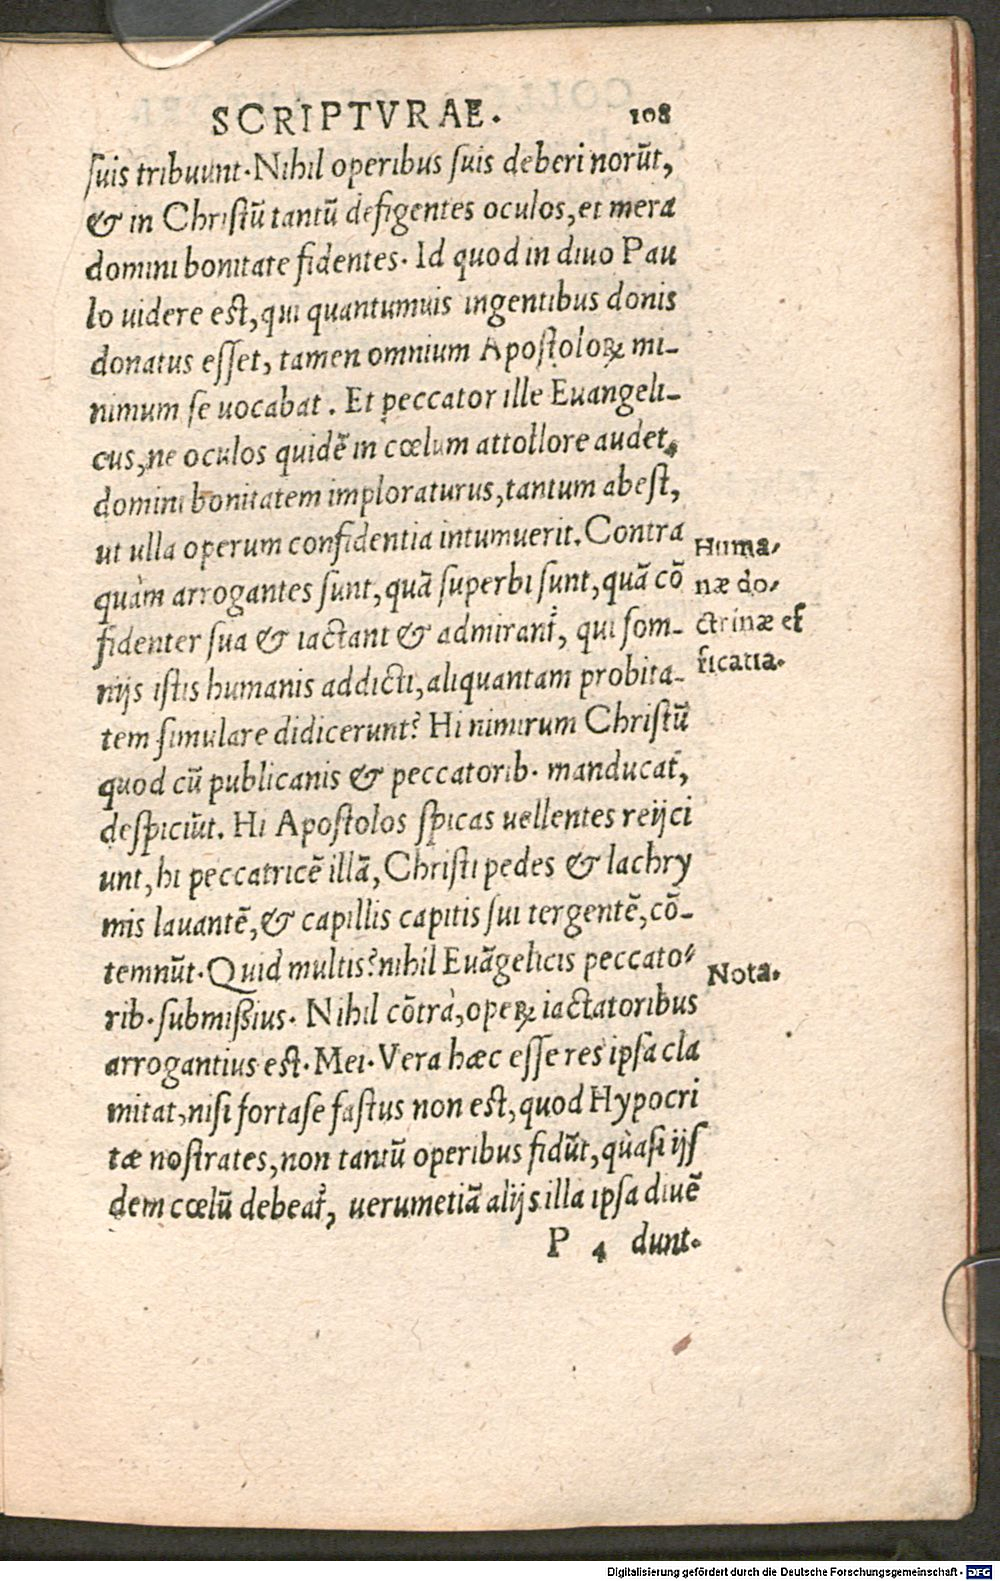 SCRIPTVRAE. 108
suis tribuunt. Nihil operibus suis deberi norūt,
& in Christū tantū defigentes oculos, et mera
domini bonitate fidentes. Id quod in diuo Pau
lo uidere est, qui quantumuis ingentibus donis
donatus esset, tamen omnium Apostoloꝝ mi-
nimum se uocabat. Et peccator ille Euangeli-
cus, ne oculos quidē in cœlum attollore audet,
domini bonitatem imploraturus, tantum abest,
ut ulla operum confidentia intumuerit. Contra
quàm arrogantes sunt, quā superbi sunt, quā cō
fidenter sua & iactant & admirant᷑, qui som-
nijs istis humanis addicti, aliquantam probita-
tem simulare didicerunt? Hi nimirum Christū
quod cū publicanis & peccatorib. manducat,
despiciūt. Hi Apostolos spicas uellentes reijci
unt, hi peccatricē illā, Christi pedes & lachry
mis lauantē, & capillis capitis sui tergentē, cō-
temnūt. Quid multis? nihil Euāgelicis peccato-
rib. submißius. Nihil cōtrà, opeꝝ iactatoribus
arrogantius est. Mei. Vera hæc esse res ipsa cla
mitat, nisi fortase fastus non est, quod Hypocri
tæ nostrates, non tantū operibus fidūt, quàsi ijs
dem cœlū debeat᷑, uerumetiā alijs illa ipsa diuē
P 4 dunt.
Huma-
næ do-
ctrinæ ef
ficatia.
Nota.
Digitalisierung gefördert durch die Deutsche Forschungsgemeinschaft - DFG